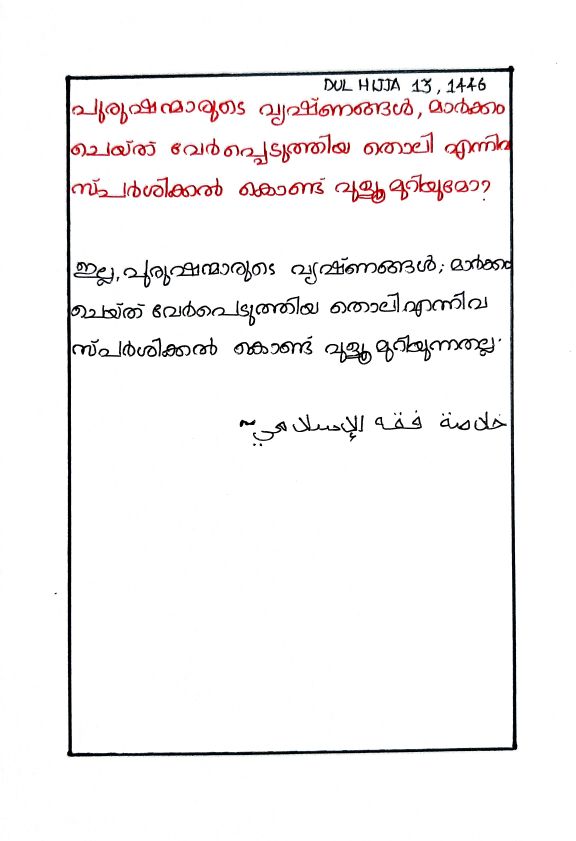 DUL HIJJA 13, 1446
പുരുഷന്മാരുടെ വൃഷ്ണങ്ങൾ, മാർക്കം
ചെയ്ത് വേർപ്പെടുത്തിയ തൊലി എന്നിവ
സ്പർശിക്കൽ കൊണ്ട് വുളൂ മുറിയുമോ?
ഇല്ല, പുരുഷന്മാരുടെ വൃഷ്ണങ്ങൾ; മാർക്കം
ചെയ്ത് വേർപെടുത്തിയ തൊലി എന്നിവ
സ്പർശിക്കൽ കൊണ്ട് വുളൂ മുറിയുന്നതല്ല.
خلاصة فقه الإسلامي~